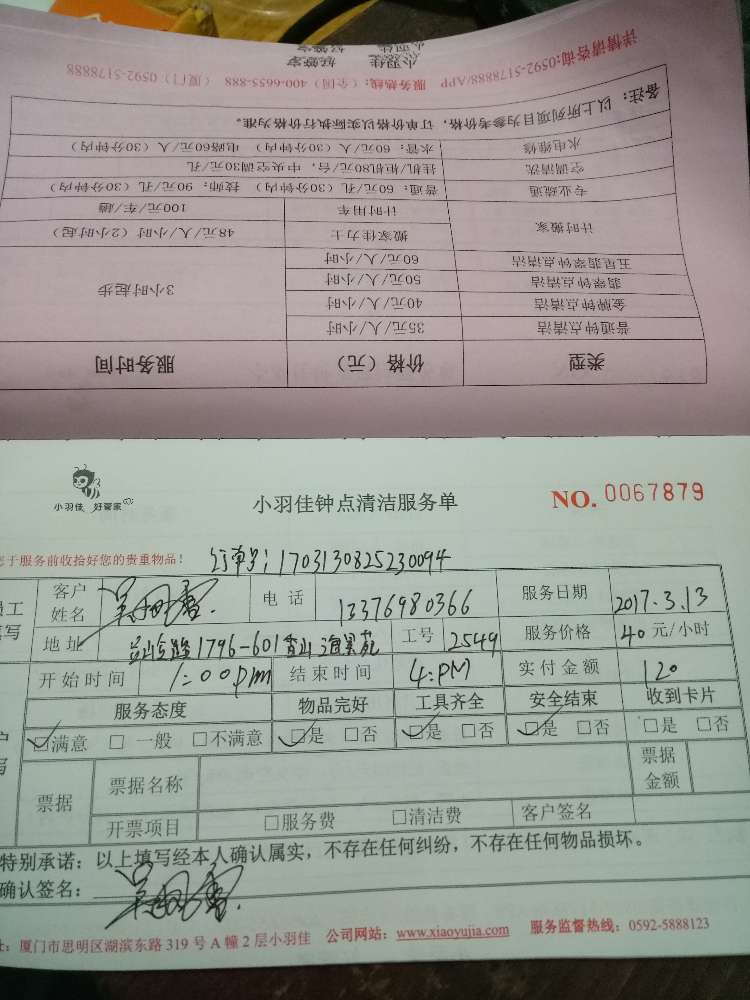 类型 价格（元） 服务时间
普通钟点清洁 35元/人/小时
金牌钟点清洁 40元/人/小时
翡翠钟点清洁 50元/人/小时
五星翡翠钟点清洁 60元/人/小时
3小时起步
计时搬家 搬家佳力士 48元/人/小时（2小时起）
计时用车 100元/车/趟
专业疏通 普通：60元/孔（30分钟内） 技师：90元/孔（30分钟内）
空调清洗 挂机/柜机80元/台，中央空调30元/孔
水电维修 水管：60元/人（30分钟内） 电路60元/人（30分钟内）
备注：以上所列项目为参考价格，订单价格以实际执行价格为准。
详情请咨询:0592-5178888/APP 服务热线：（全国）400-6655-888 （厦门）0592-5178888
小羽佳 好管家
小羽佳 好管家
小羽佳钟点清洁服务单
NO. 0067879
于服务前收拾好您的贵重物品！
订单号：1703130825230094
员工
填写
客户姓名
电话 13376980366
服务日期 2017.3.13
地址 1796-601
工号 2549
服务价格 40元/小时
开始时间 1:00pm
结束时间 4:PM
实付金额 120
服务态度 物品完好 工具齐全 安全结束 收到卡片
☑满意 □一般 □不满意 ☑是 □否 ☑是 □否 ☑是 □否 □是 □否
票据 票据名称 票据金额
开票项目 □服务费 □清洁费 客户签名
特别承诺：以上填写经本人确认属实，不存在任何纠纷，不存在任何物品损坏。
确认签名：
址：厦门市思明区湖滨东路319号A幢2层小羽佳 公司网站：www.xiaoyujia.com 服务监督热线：0592-5888123